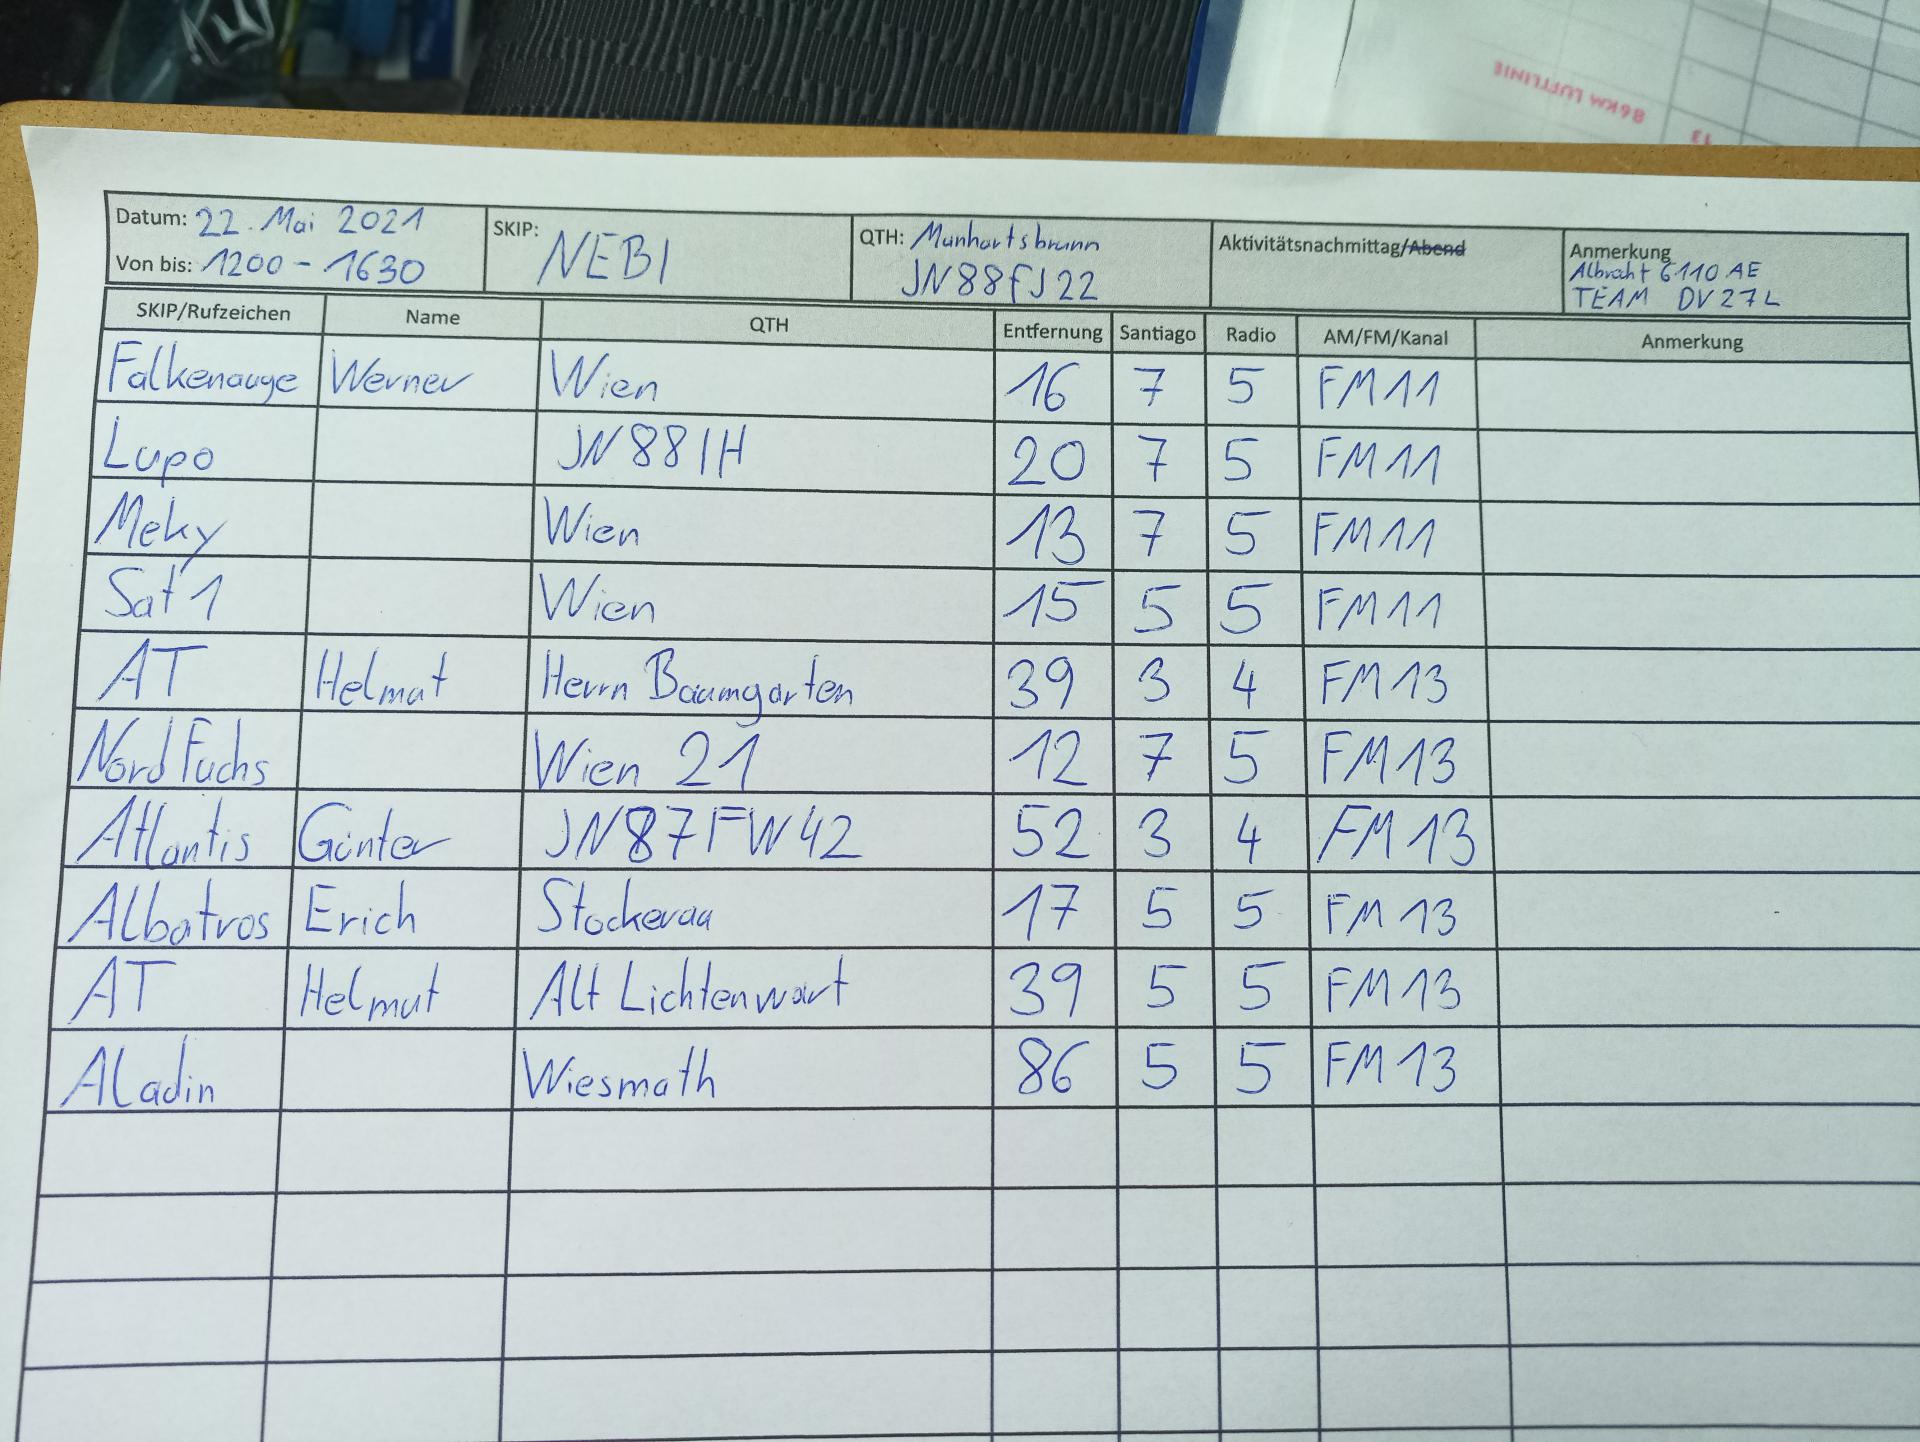 86KM LUFTLINIE
13
Datum: 22. Mai 2021
Von bis: 1200 - 1630
SKIP: NEBI
QTH: Manhartsbrunn
JN88FJ22
Aktivitätsnachmittag/Abend
Anmerkung
Albrecht 6110 AE
TEAM DV27L
SKIP/Rufzeichen Name QTH Entfernung Santiago Radio AM/FM/Kanal Anmerkung
Falkenauge Werner Wien 16 7 5 FM11
Lupo JN88IH 20 7 5 FM11
Meky Wien 13 7 5 FM11
Sat 1 Wien 15 5 5 FM11
AT Helmut Herrn Baumgarten 39 3 4 FM13
Nord Fuchs Wien 21 12 7 5 FM13
Atlantis Günter JN87FW42 52 3 4 FM13
Albatros Erich Stockerau 17 5 5 FM13
AT Helmut Alt Lichtenwart 39 5 5 FM13
Aladin Wiesmath 86 5 5 FM13